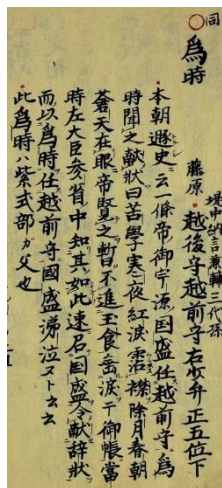 同
為時
堤中納言兼輔三代孫
藤原・越後守越前守右少弁正五位下
本朝遯史云一條帝御宇源国盛任越前守為
時聞之献状曰苦学寒夜紅涙霑襟除月春朝
蒼天在眼帝覧之暫不進玉食垂涙于御帳當
時左大臣参省中知其如此速召国盛令献辞状
而以為時任越前守國盛涕泣ヌト云云
此為時ハ紫式部カ父也